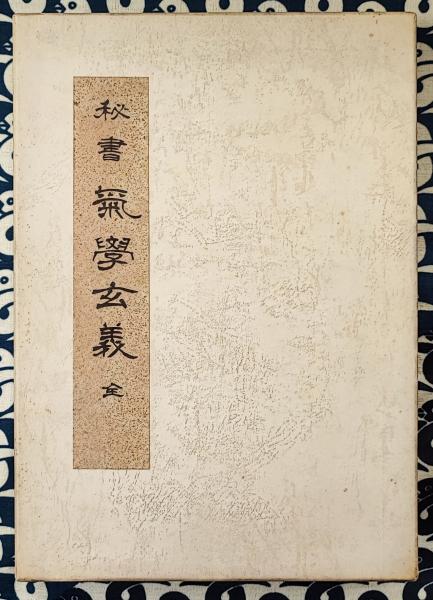 秘書 氣學玄義 全